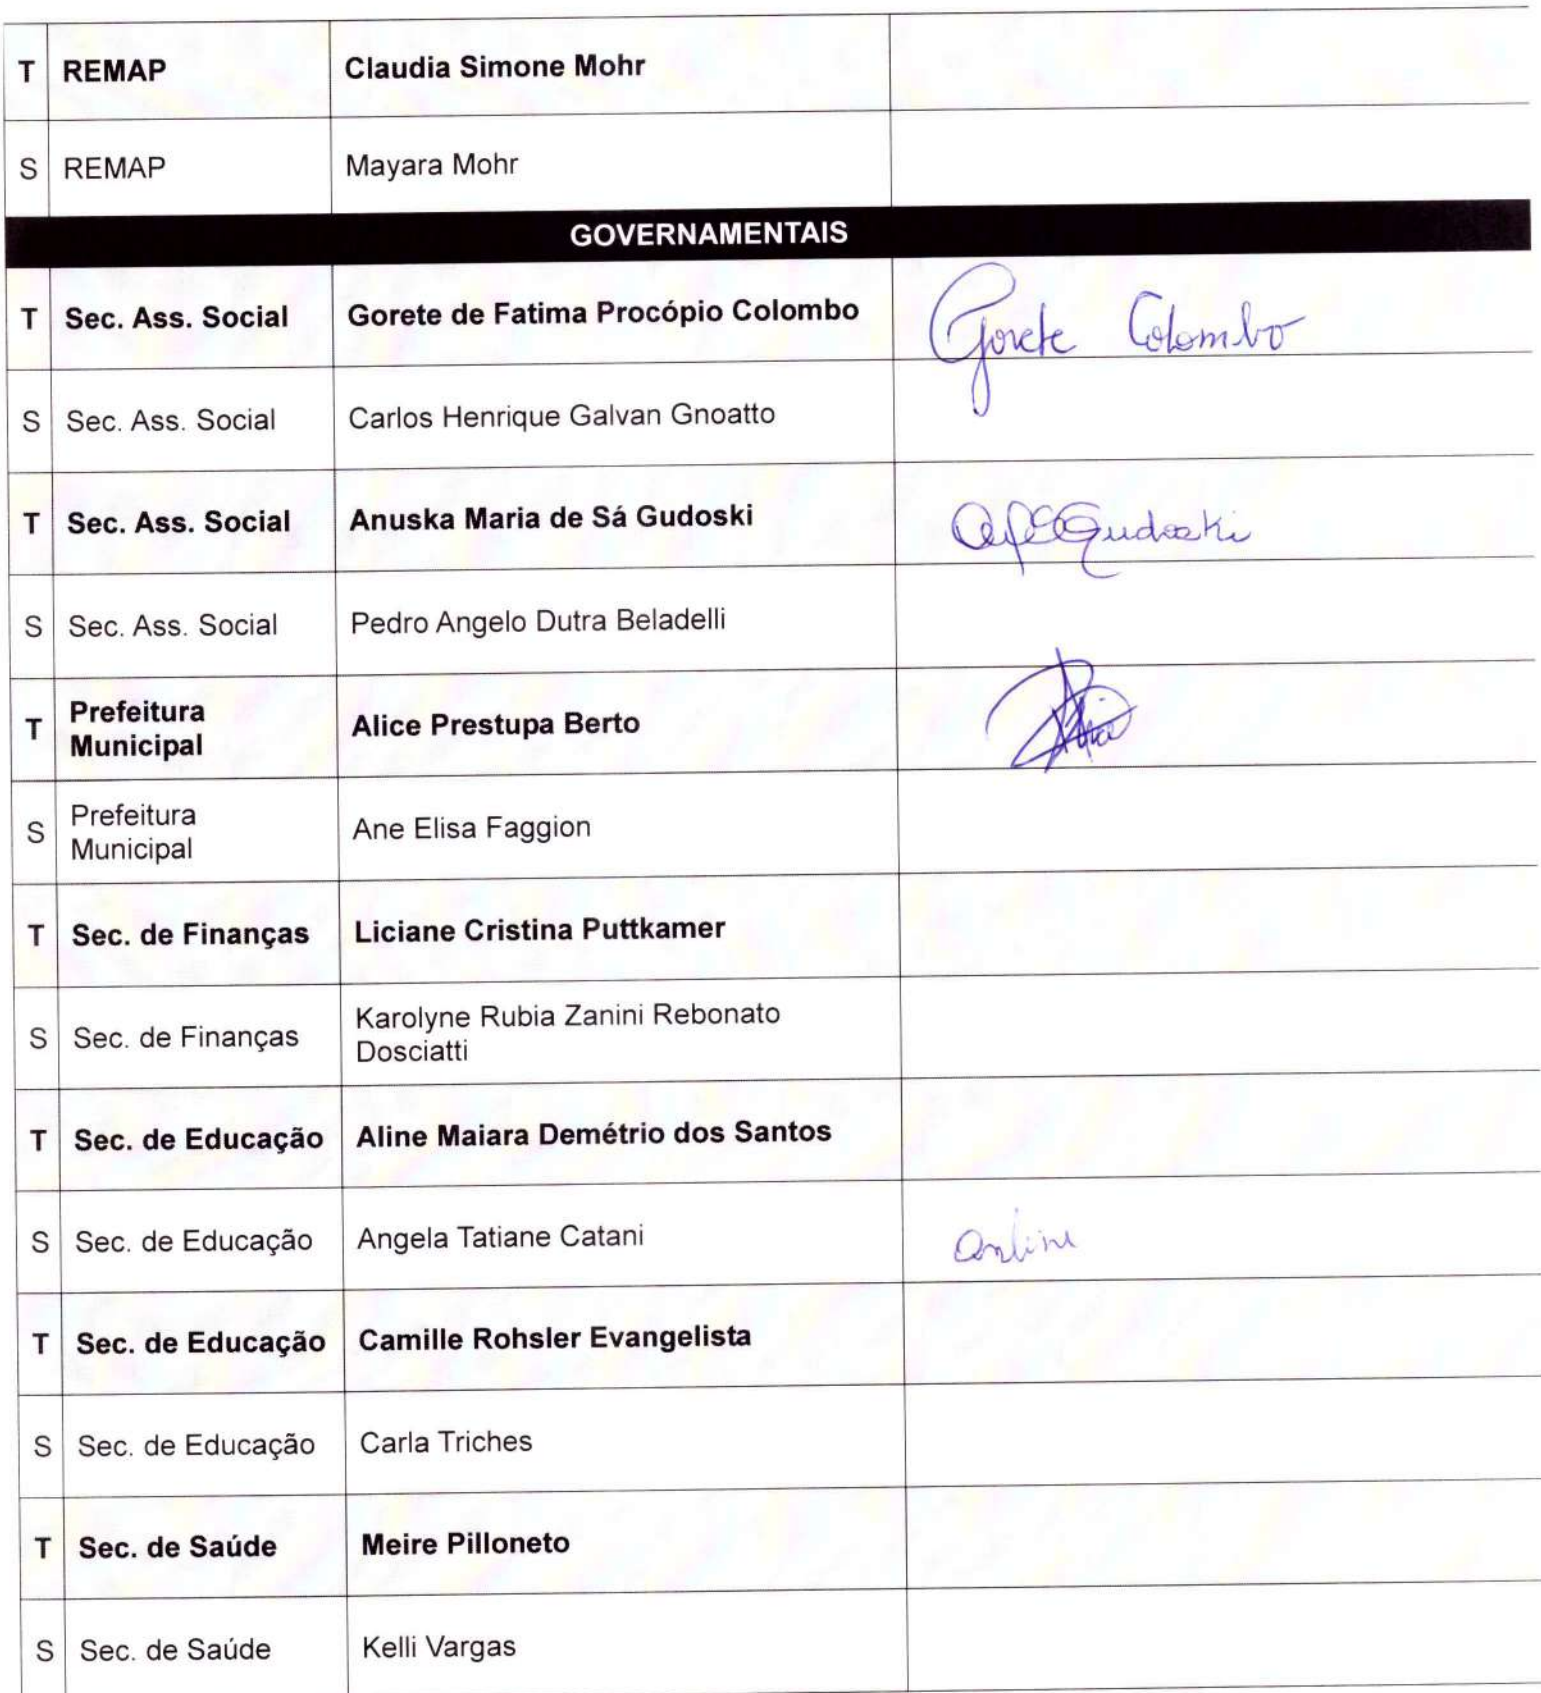 T REMAP Claudia Simone Mohr
S REMAP Mayara Mohr
GOVERNAMENTAIS
T Sec. Ass. Social Gorete de Fatima Procópio Colombo Gorete Colombo
S Sec. Ass. Social Carlos Henrique Galvan Gnoatto
T Sec. Ass. Social Anuska Maria de Sá Gudoski Gudoski
S Sec. Ass. Social Pedro Angelo Dutra Beladelli
T Prefeitura
Municipal Alice Prestupa Berto
S Prefeitura
Municipal Ane Elisa Faggion
T Sec. de Finanças Liciane Cristina Puttkamer
S Sec. de Finanças Karolyne Rubia Zanini Rebonato
Dosciatti
T Sec. de Educação Aline Maiara Demétrio dos Santos
S Sec. de Educação Angela Tatiane Catani online
T Sec. de Educação Camille Rohsler Evangelista
S Sec. de Educação Carla Triches
T Sec. de Saúde Meire Pilloneto
S Sec. de Saúde Kelli Vargas